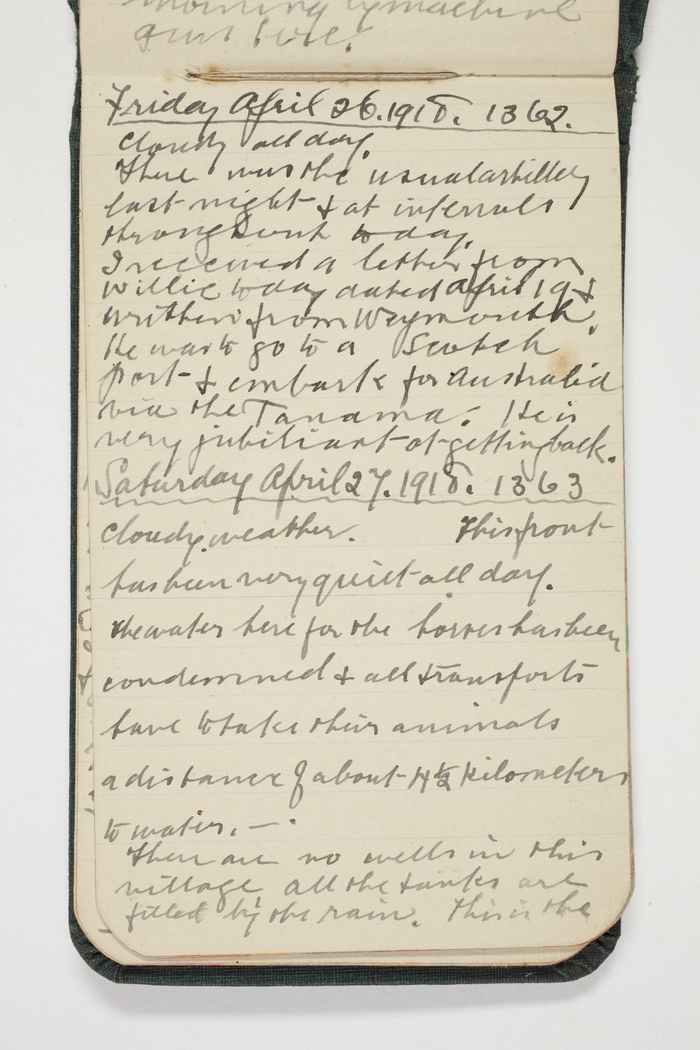 morning by machine
gun fire.
Friday April 26. 1918. 1362.
Cloudy all day.
There was the usual artillery
last night & at intervals
throughout today.
I received a letter from
Willie today dated April 19 &
written from Weymouth.
He was to go to a Scotch
port & embark for Australia
via the Panama. He is
very jubiliant at getting back.
Saturday April 27. 1918. 1363
Cloudy weather. This front
has been very quiet all day.
The water here for the horses has been
condemned & all transports
have to take their animals
a distance of about 4½ kilometers
to water. —
There are no wells in this
village all the tanks are
filled by the rain. This is the